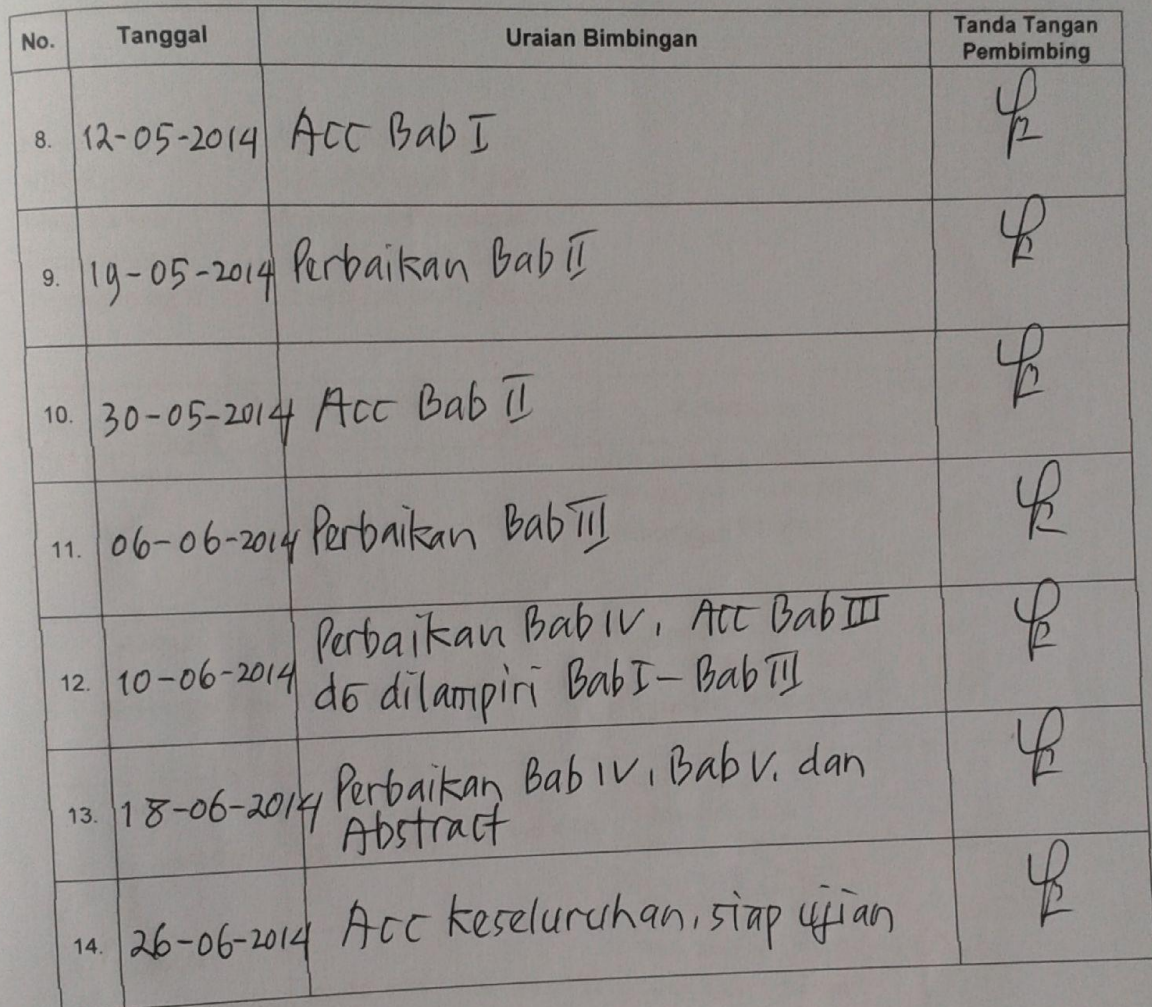 No. Tanggal Uraian Bimbingan Tanda Tangan
Pembimbing
8. 12-05-2014 Acc Bab I
9. 19-05-2014 Perbaikan Bab II
10. 30-05-2014 Acc Bab II
11. 06-06-2014 Perbaikan Bab III
12. 10-06-2014 Perbaikan Bab IV, Acc Bab III
dilampiri Bab I - Bab III
13. 18-06-2014 Perbaikan Bab IV, Bab V, dan
Abstract
14. 26-06-2014 Acc keseluruhan, siap ujian